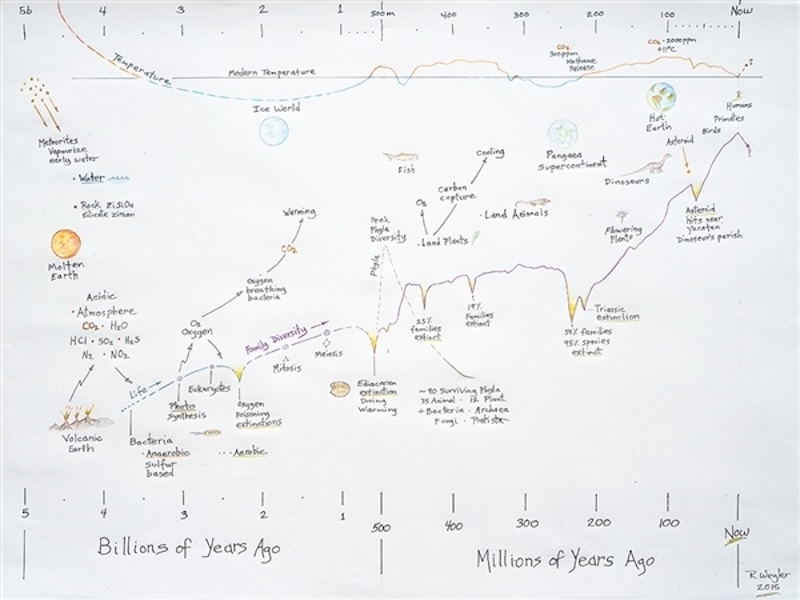 5b 4 3 2 1 500m 400 300 200 100 Now
Temperature
Modern Temperature
CO2
Methane
Release
CO2 · 2000ppm
+11°C
Ice World
Meteorites
Vapourize
early water
· Water
· Rock ZiSiO4
Silicate zircon
Molten
Earth
Acidic
· Atmosphere
CO2 · H2O
HCl · SO2 · H2S
N2 · NO2
Volcanic
Earth
Life
Bacteria
· Anaerobic
Sulfur
based
Photo
Synthesis
Eukaryotes
O2
Oxygen
Oxygen
breathing
bacteria
CO2
Warming
Oxygen
Poisoning
extinctions
· Aerobic
Family Diversity
Mitosis
Meiosis
Ediacaran
extinction
During
Warming
Peak
Phyla
Diversity
Phyla
Fish
O2
Carbon
capture
Cooling
· Land Plants
· Land Animals
families
extinct
19%
Families
extinct
~90 Surviving Phyla
35 Animal · 12 Plant
+ Bacteria · Archaea
Fungi · Protista
Pangaea
Supercontinent
Triassic
extinction
families
95% species
extinct
Flowering
Plants
Dinosaurs
Hot
Earth
Asteroid
Asteroid
hits near
Yucatan
Dinosaurs perish
Humans
Primates
Birds
5 4 3 2 1 500 400 300 200 100 Now
Billions of Years Ago
Millions of Years Ago
R Wegler
2015